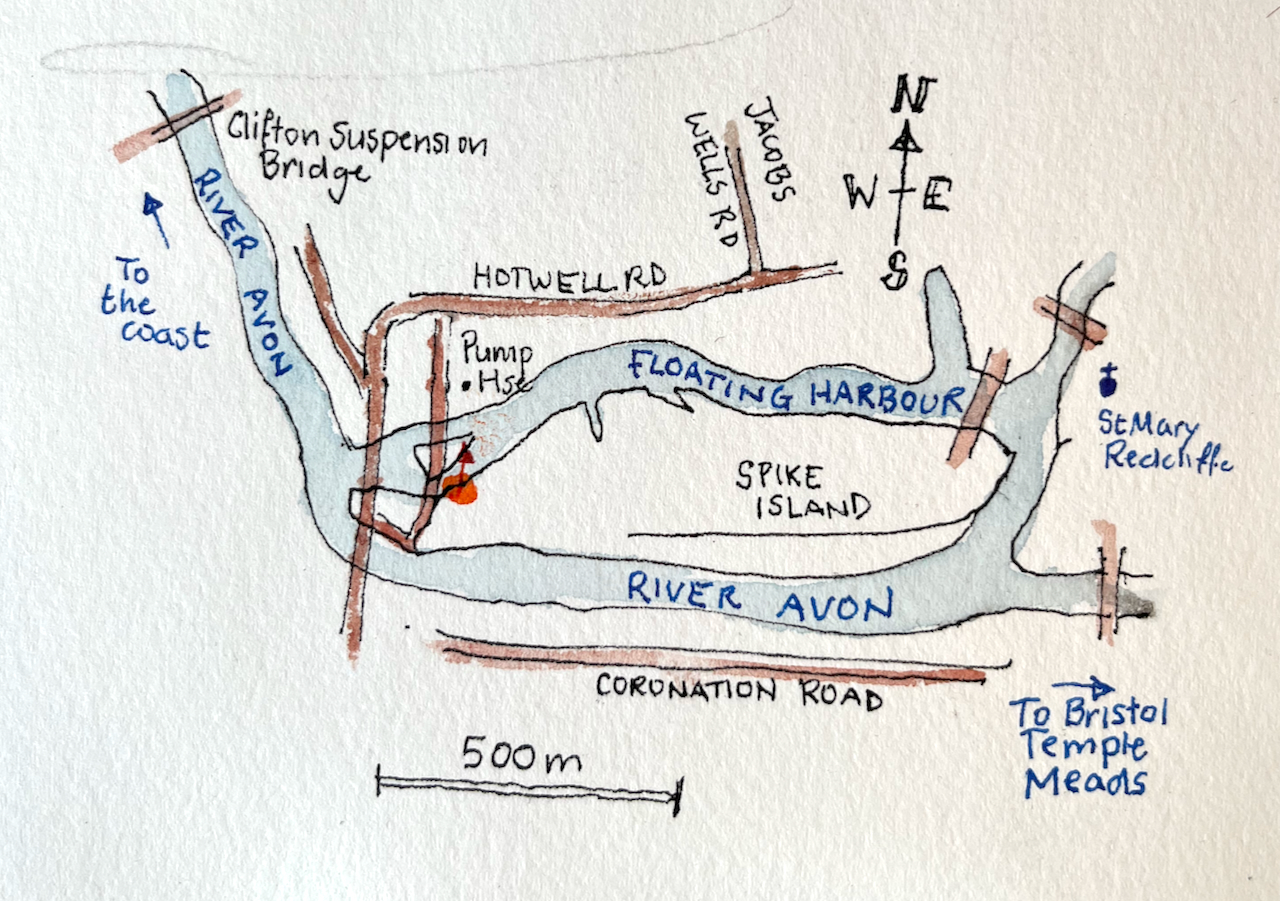 Clifton Suspension
Bridge
RIVER
AVON
To
the
coast
HOTWELL RD
JACOBS
WELLS RD
N
W E
S
Pump
Hse
FLOATING HARBOUR
St Mary
Redcliffe
SPIKE
ISLAND
RIVER AVON
CORONATION ROAD
500m
To Bristol
Temple
Meads